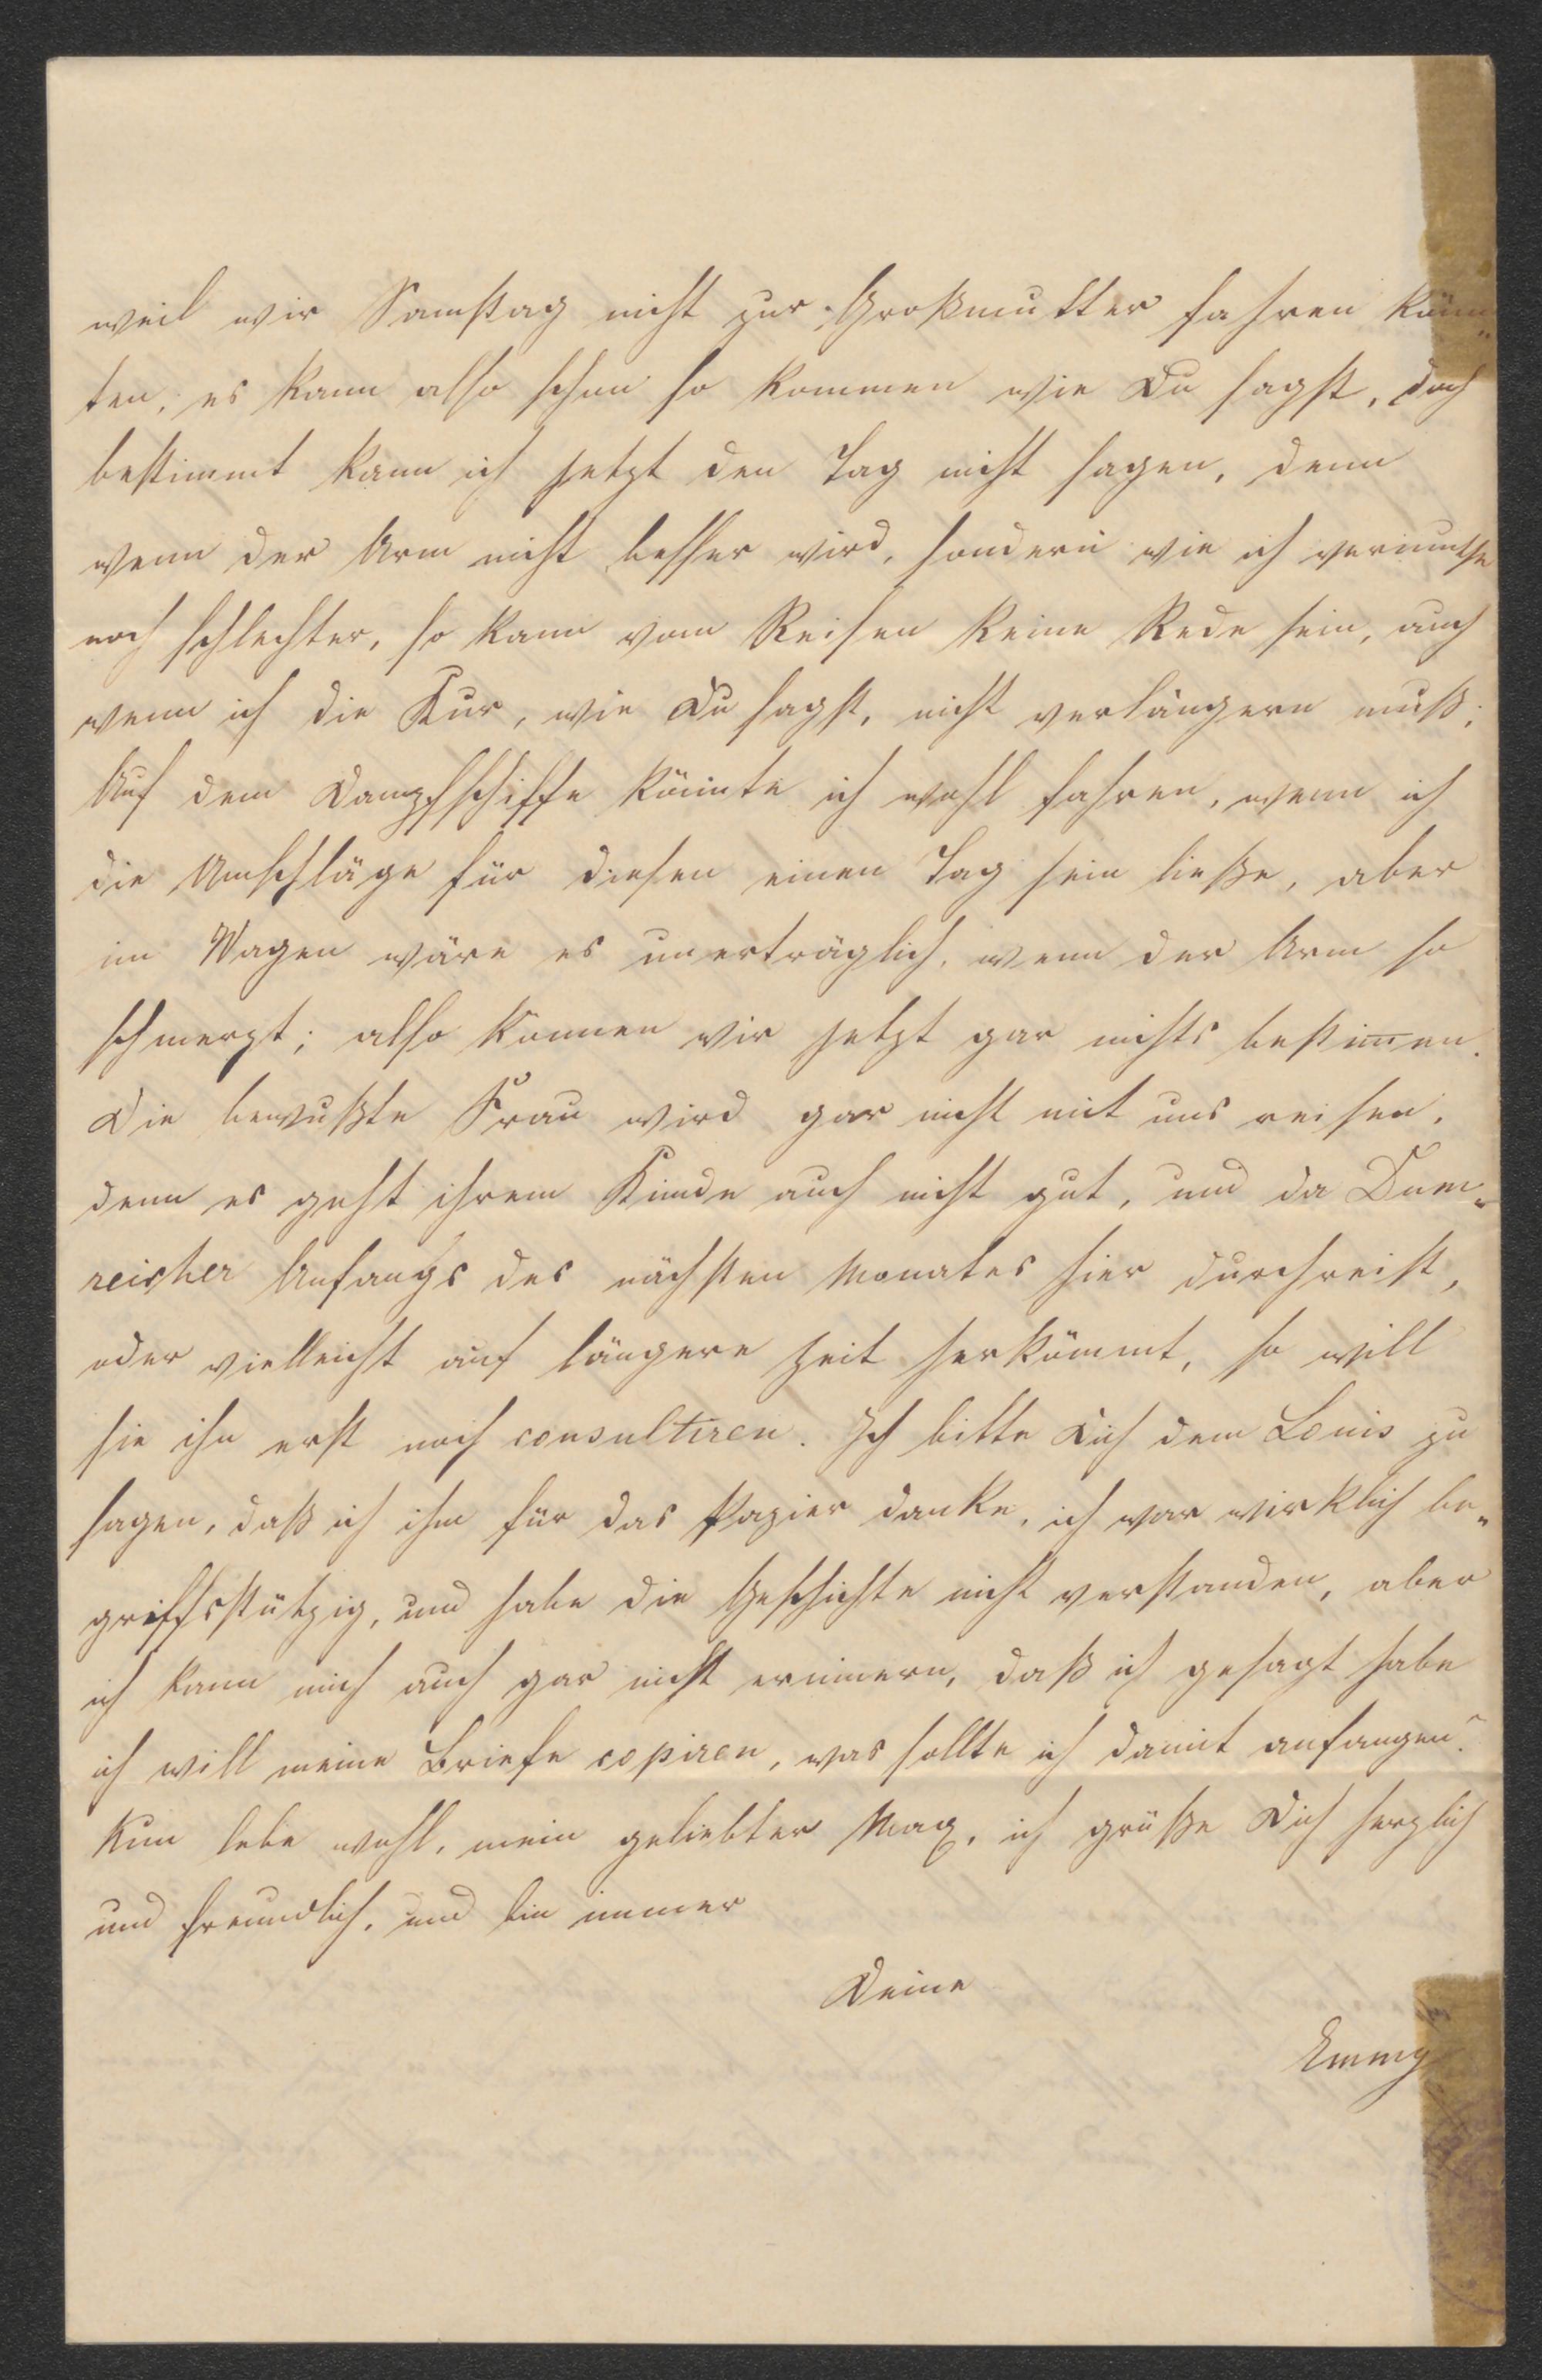 weil wir Samstag nicht zur Großmutter fahren könn„
ten, es kann also schon so kommen wie Du sagst, doch
bestimmt kann ich jetzt den Tag nicht sagen, denn
wenn der Arm nicht besser wird, sondern wie ich vermuthe
noch schlechter, so kann vom Reisen keine Rede sein, auch
wenn ich die Kur, wie Du sagst, nicht verlängern muß;
Auf dem Dampfschiffe könnte ich wohl fahren, wenn ich
die Umschläge für diesen einen Tag sein ließe, aber
im Wagen wäre es unerträglich, wenn der Arm so
schmerzt; also können wir jetzt gar nichts bestim̅en.
Die bewußte Frau wird gar nicht mit uns reisen,
denn es geht ihrem Kinde auch nicht gut, und da Dum„
reicher Anfangs des nächsten Monates hier durchreist,
oder vielleicht auf längere Zeit herkömmt, so will
sie ihn erst noch consultiren. Ich bitte Dich dem Louis zu
sagen, daß ich ihm für das Papier danke, ich war wirklich be„
griffsstützig, und habe die Geschichte nicht verstanden, aber
ich kann mich auch gar nicht erinnern, daß ich gesagt habe
ich will meine Briefe copiren, was sollte ich damit anfangen?
Nun lebe wohl, mein geliebter Max, ich grüße Dich herzlich
und freundlich, und bin immer
Deine
Emmy